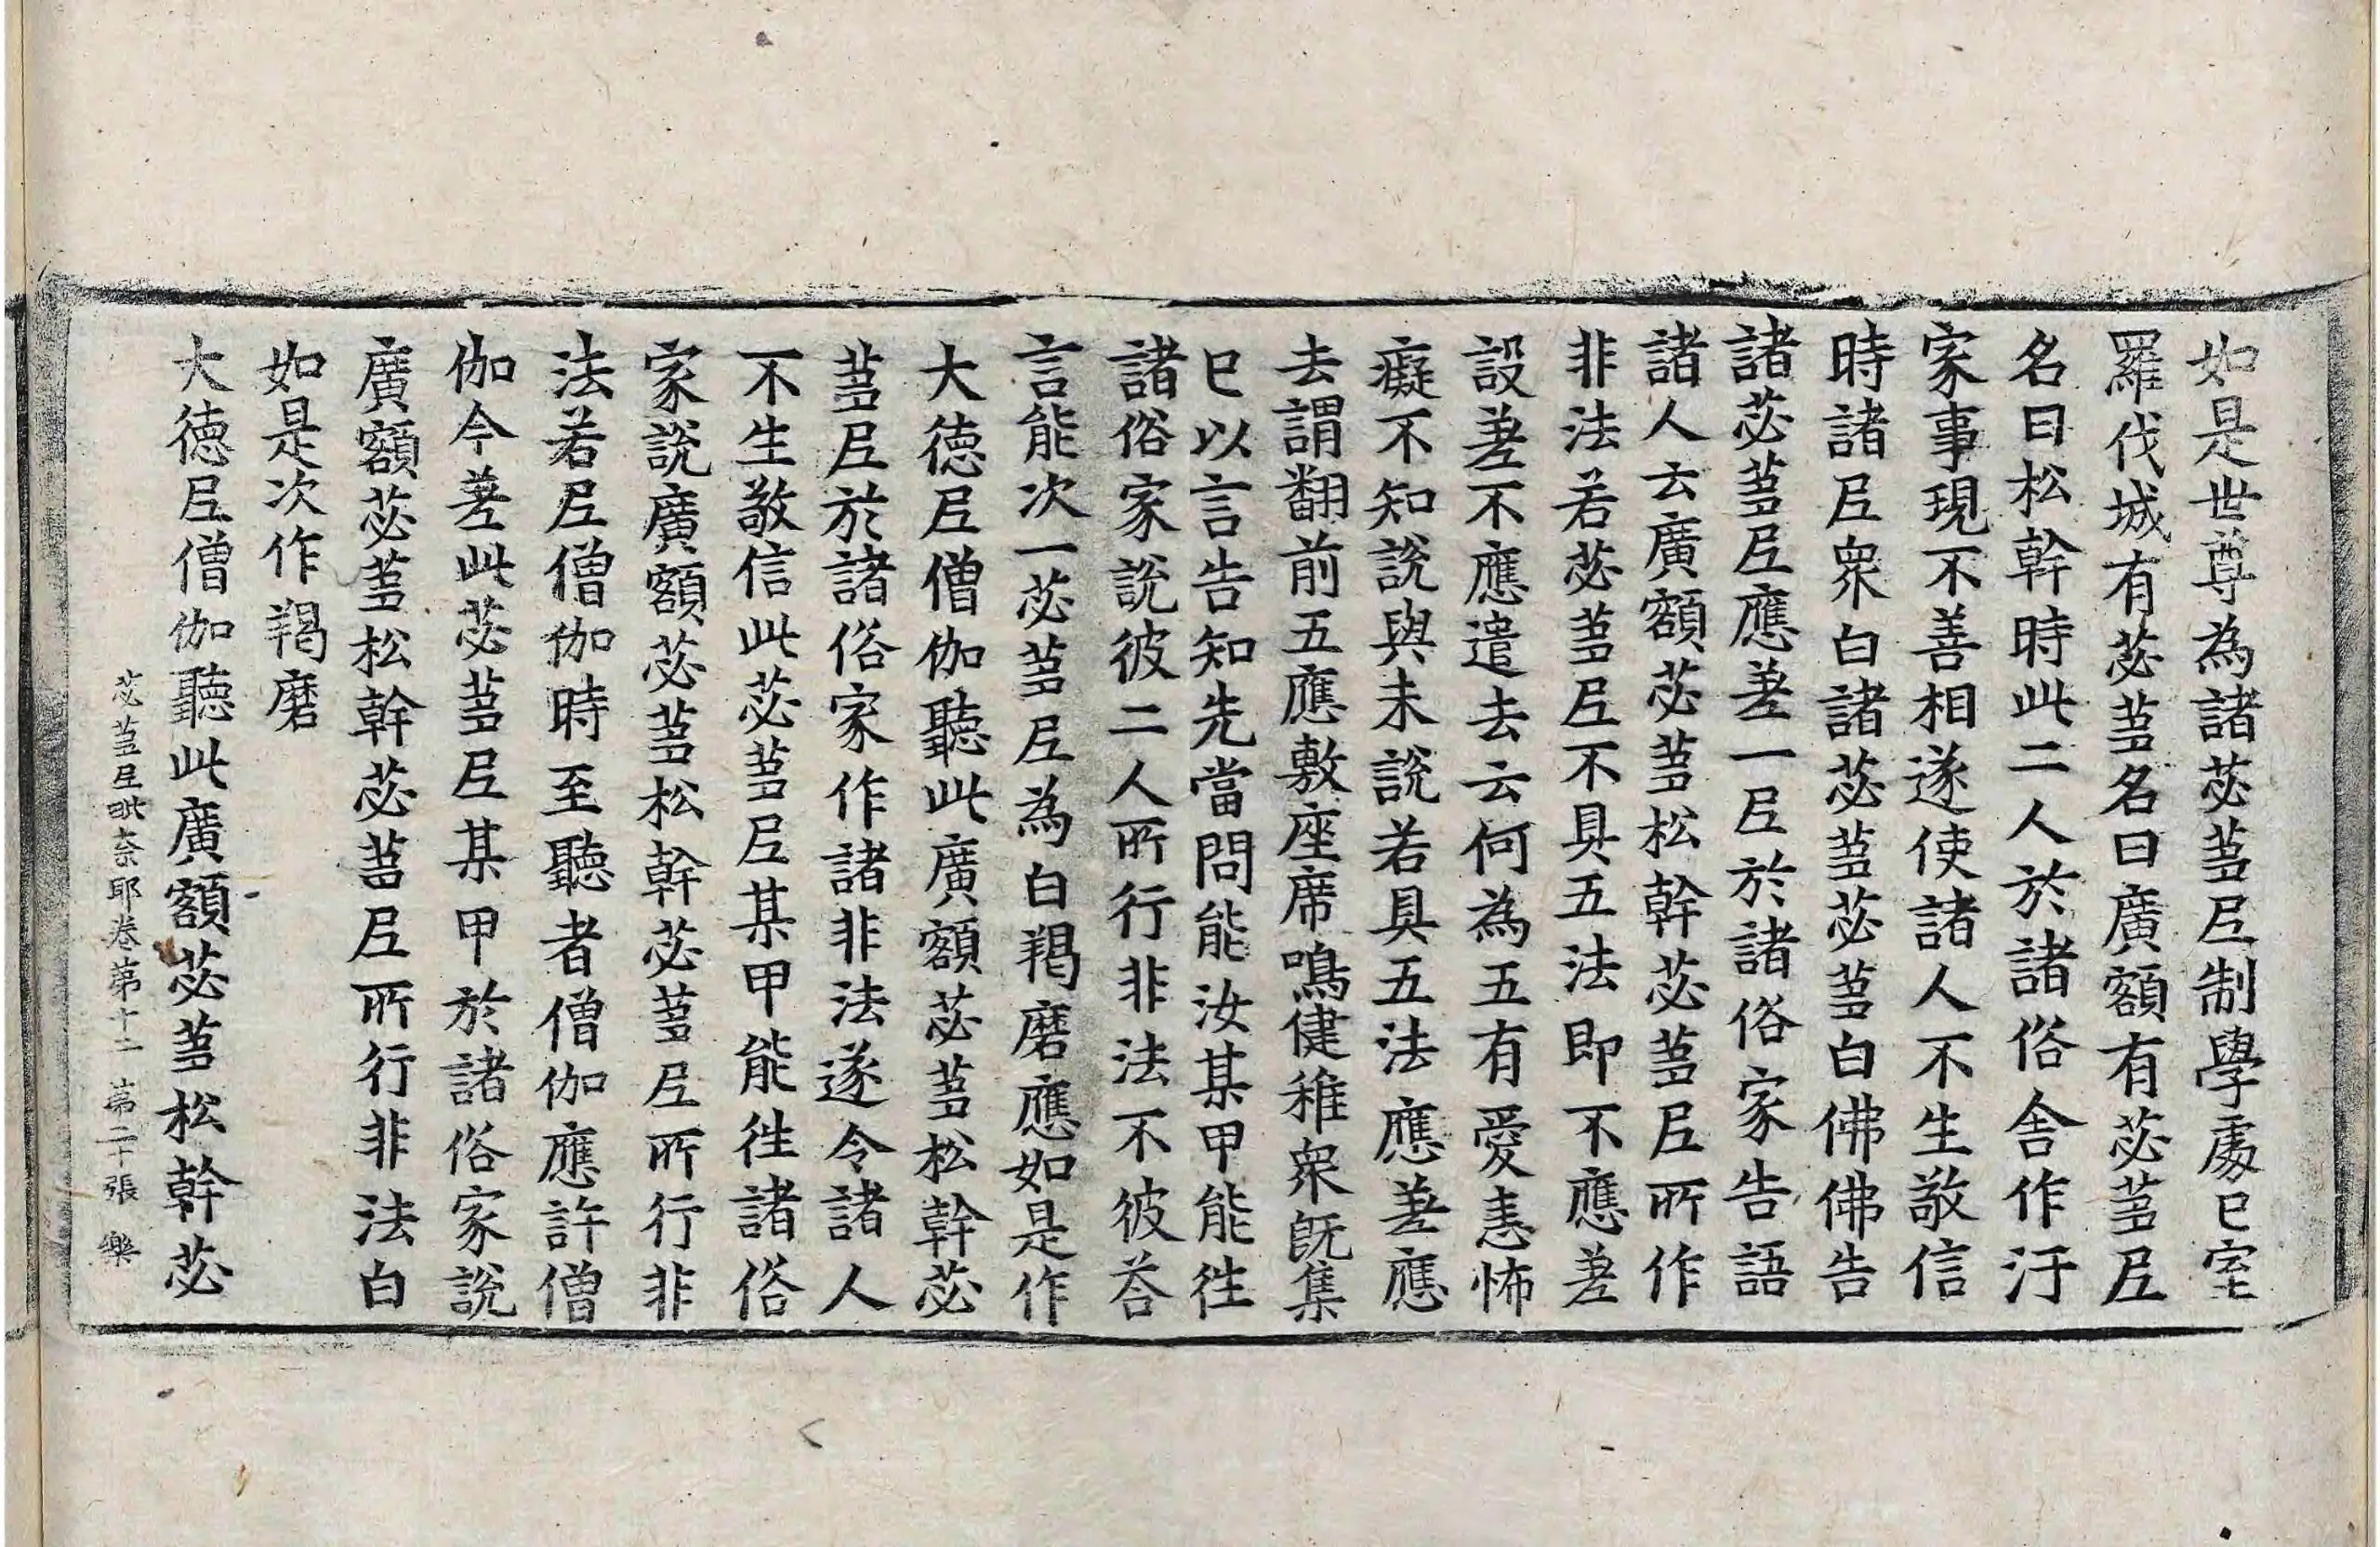 如是世尊為諸苾蒭尼制學處已室
羅伐城有苾蒭名曰廣額有苾蒭尼
名曰松幹時此二人於諸俗舍作汙
家事現不善相遂使諸人不生敬信
時諸尼衆白諸苾蒭苾蒭白佛佛告
諸苾蒭尼應差一尼於諸俗家告語
諸人云廣額苾蒭松幹苾蒭尼所作
非法若苾蒭尼不具五法即不應差
設差不應遣去云何為五有愛恚怖
癡不知說與未說若具五法應差應
去謂翻前五應敷座席鳴健稚衆旣集
已以言告知先當問能汝某甲能往
諸俗家說彼二人所行非法不彼荅
言能次一苾蒭尼為白羯磨應如是作
大德尼僧伽聽此廣額苾蒭松幹苾
蒭尼於諸俗家作諸非法遂令諸人
不生敬信此苾蒭尼某甲能往諸俗
家說廣額苾蒭松幹苾蒭尼所行非
法若尼僧伽時至聽者僧伽應許僧
伽今差此苾蒭尼某甲於諸俗家說
廣額苾蒭松幹苾蒭尼所行非法白
如是次作羯磨
大德尼僧伽聽此廣額苾蒭松幹苾
苾蒭尼毗奈耶卷第十二 第二十張 樂